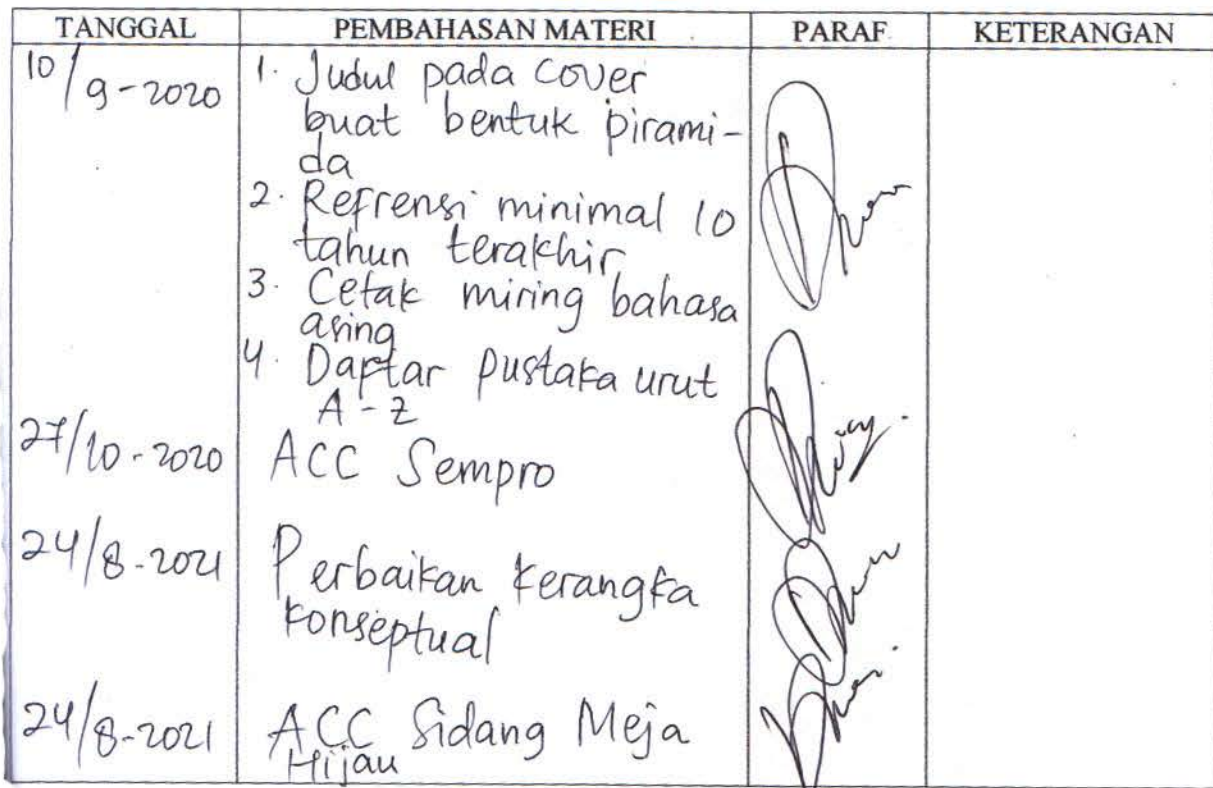 TANGGAL PEMBAHASAN MATERI PARAF KETERANGAN
10/9-2020 1. Judul pada cover
buat bentuk pirami-
da
2. Refrensi minimal 10
tahun terakhir
3. Cetak miring bahasa
asing
4. Daftar pustaka urut
A-Z
27/10-2020 ACC Sempro
24/8-2021 Perbaikan kerangka
konseptual
24/8-2021 ACC Sidang Meja
Hijau